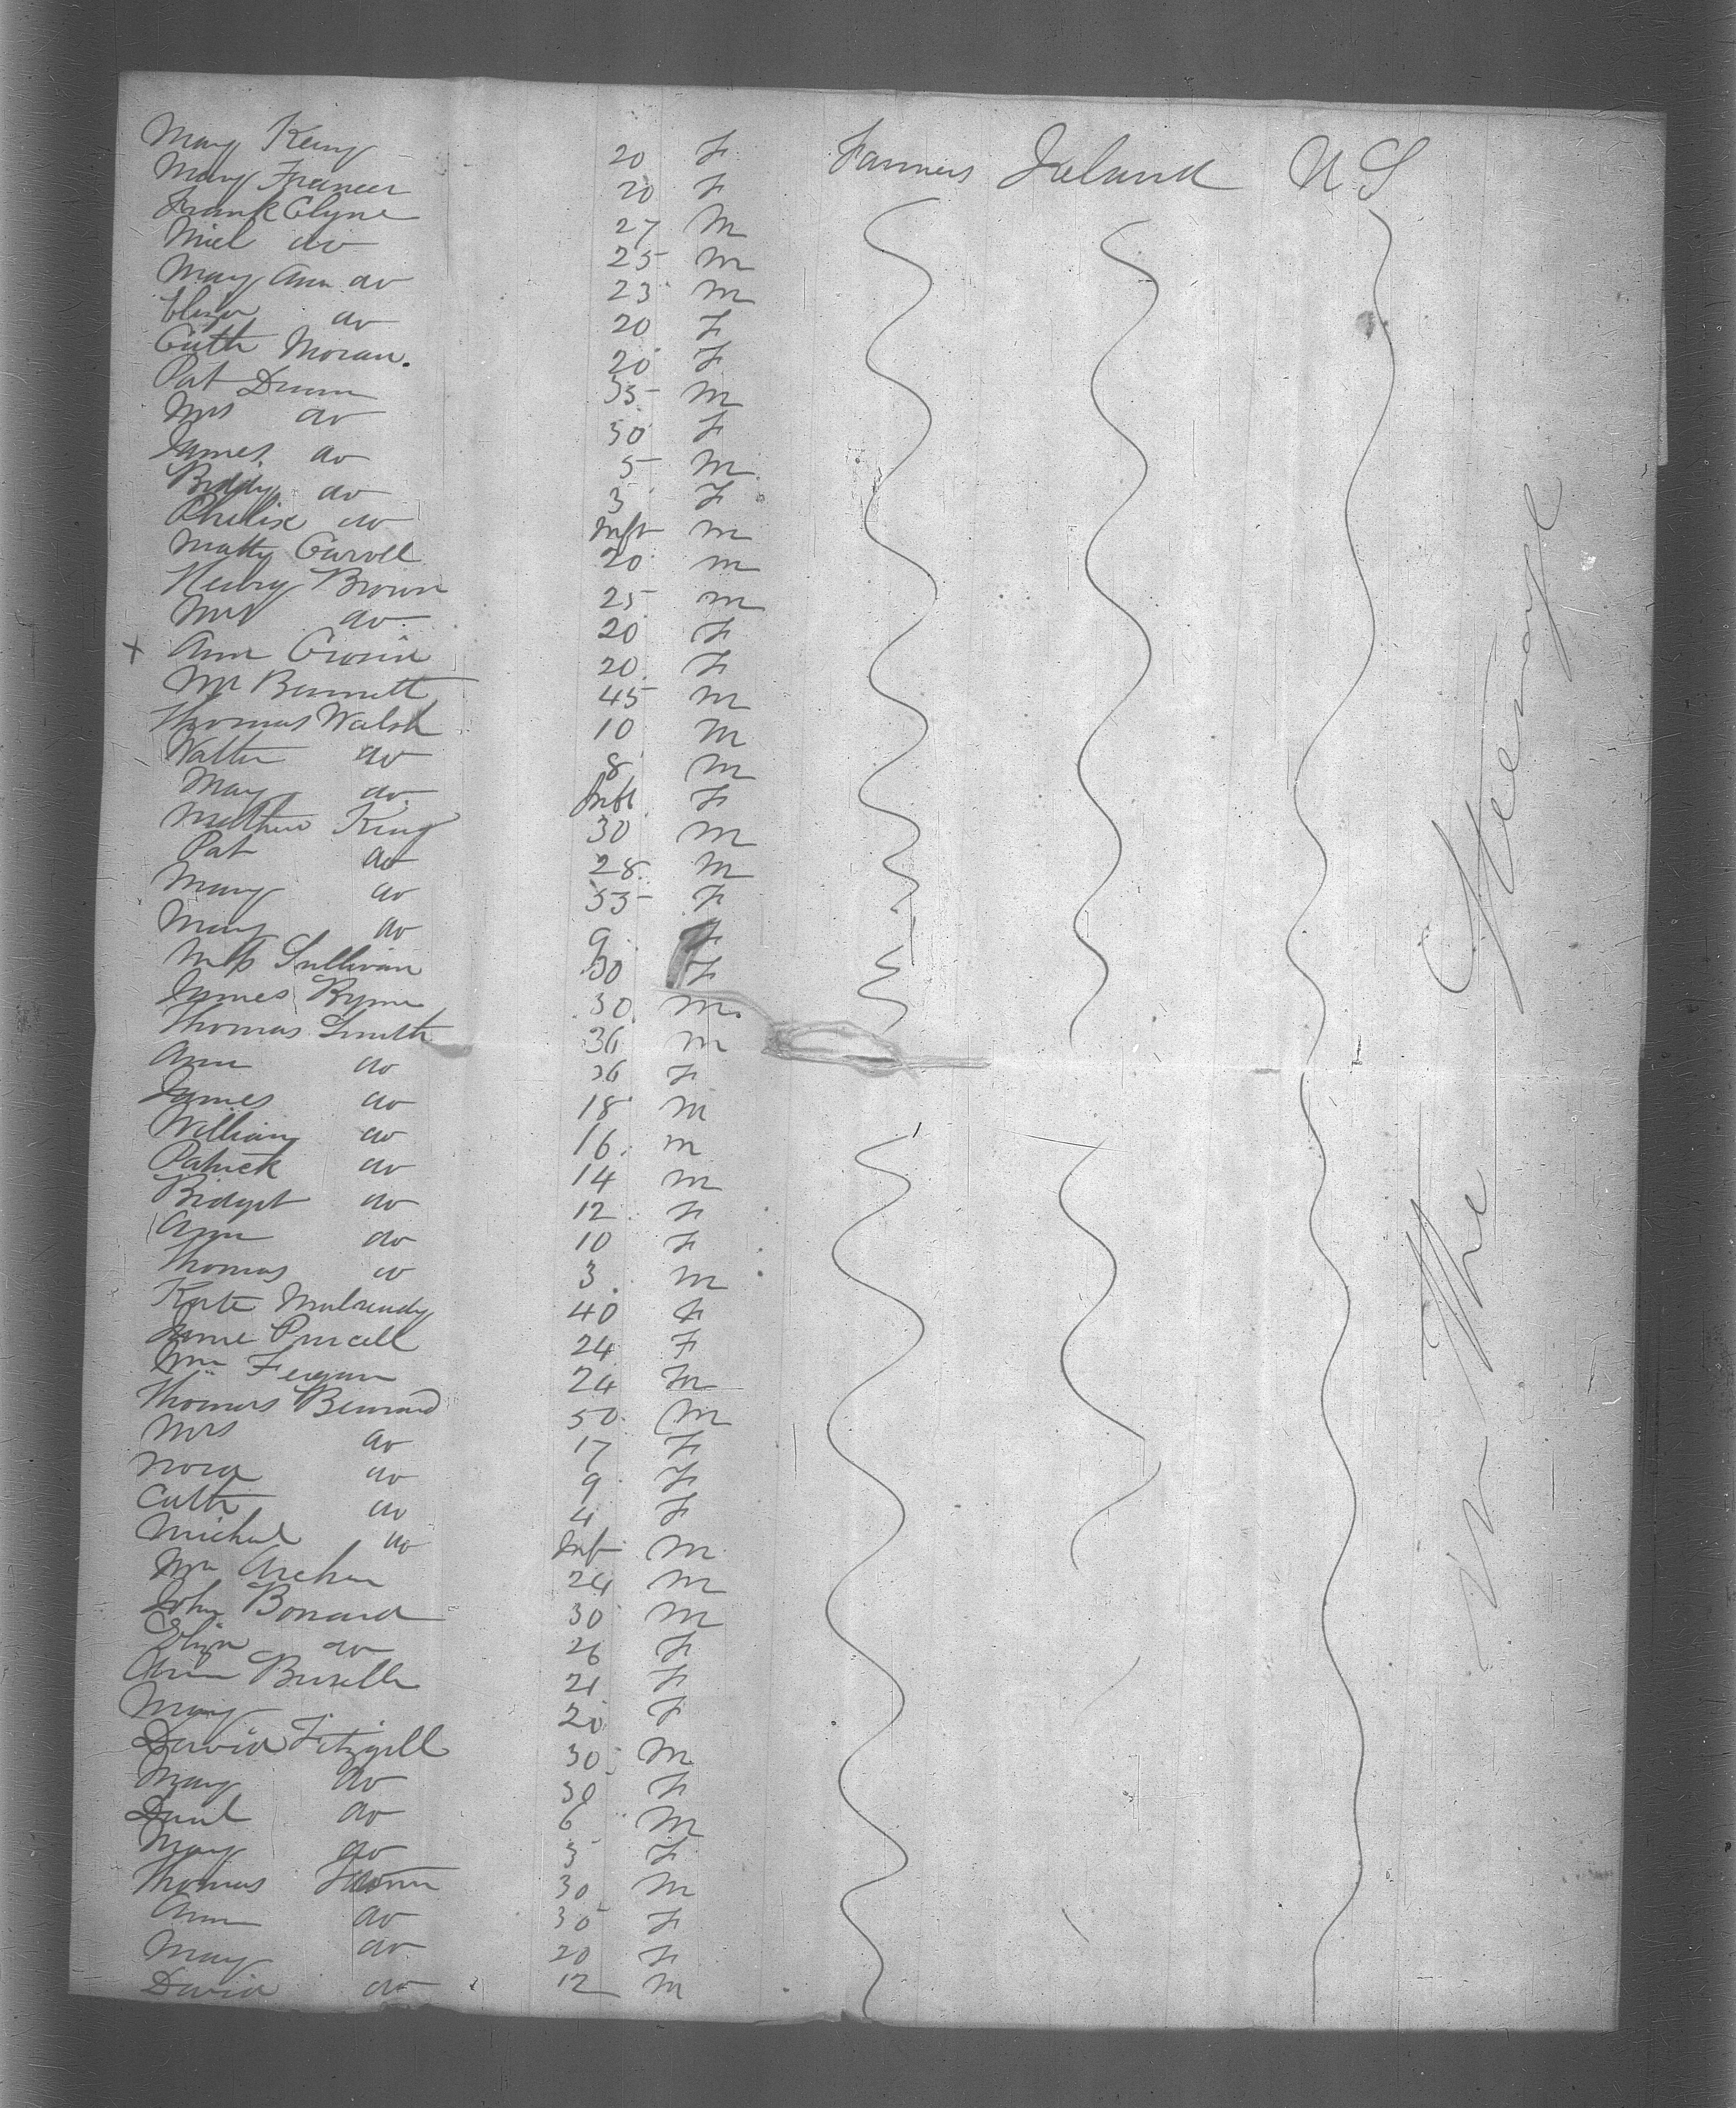 Mary Keny 20 F Farmers Ireland U S
Mary Francer 20 F
Frank Clyne 27 M
Niel do 25 M
Mary Ann do 23 M
Eliza do 20 F
Cath Moran. 20 F
Pat Dunn 35 M
Mrs do 30 F
James do 5 M
Biddy do 3 F
Phelix do Inft M
Matty Carroll 20 M
Henry Brown 25 M
Mrs do 20 F
+ Ann Cronin 20 F
Mr Bennett 45 M
Thomas Walsh 10 M
Walter do 8 M
Mary do Inft F
Mathew King 30 M
Pat do 28 M
Mary do 35 F
Mary do 9 F
Miss Sullivan 30 F
James Byrne 30 M
Thomas Smith 36 M
Ann do 36 F
James do 18 M
William do 16 M
Patrick do 14 M
Bridget do 12 F
Ann do 10 F
Thomas do 3 M
Kate Mulready 40 F
Jane Purcell 24 F
Wm 24 M
Thomas Bernard 50 M
Mrs do 17 F
Nora do 9 F
Cath do 4 F
Michael do Inft M
Wm Archer 24 M
John Bonnard 30 M
Eliza do 26 F
Burelle 21 F
Mary 20 F
David Fitzgill 30 M
Mary do 30 F
do 6 M
Mary do 3 F
Thomas 30 M
Ann do 30 F
Mary do 20 F
David do 12 M
In The Steerage